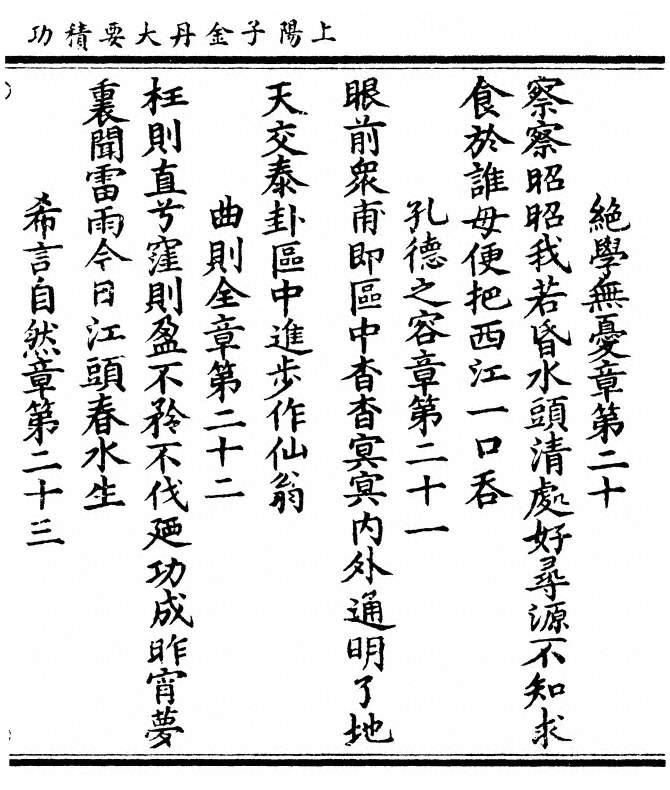 上陽子金丹大要積功
絕學無憂章第二十
察察昭昭我若昏水頭清處好尋源不知求
食於誰母便把西江一口吞
孔德之容章第二十一
眼前衆甫即區中杳杳冥冥內外通明了地
天交泰卦區中進步作仙翁
曲則全章第二十二
枉則直兮窪則盈不矜不伐廼功成昨宵夢
裏聞雷雨今日江頭春水生
希言自然章第二十三